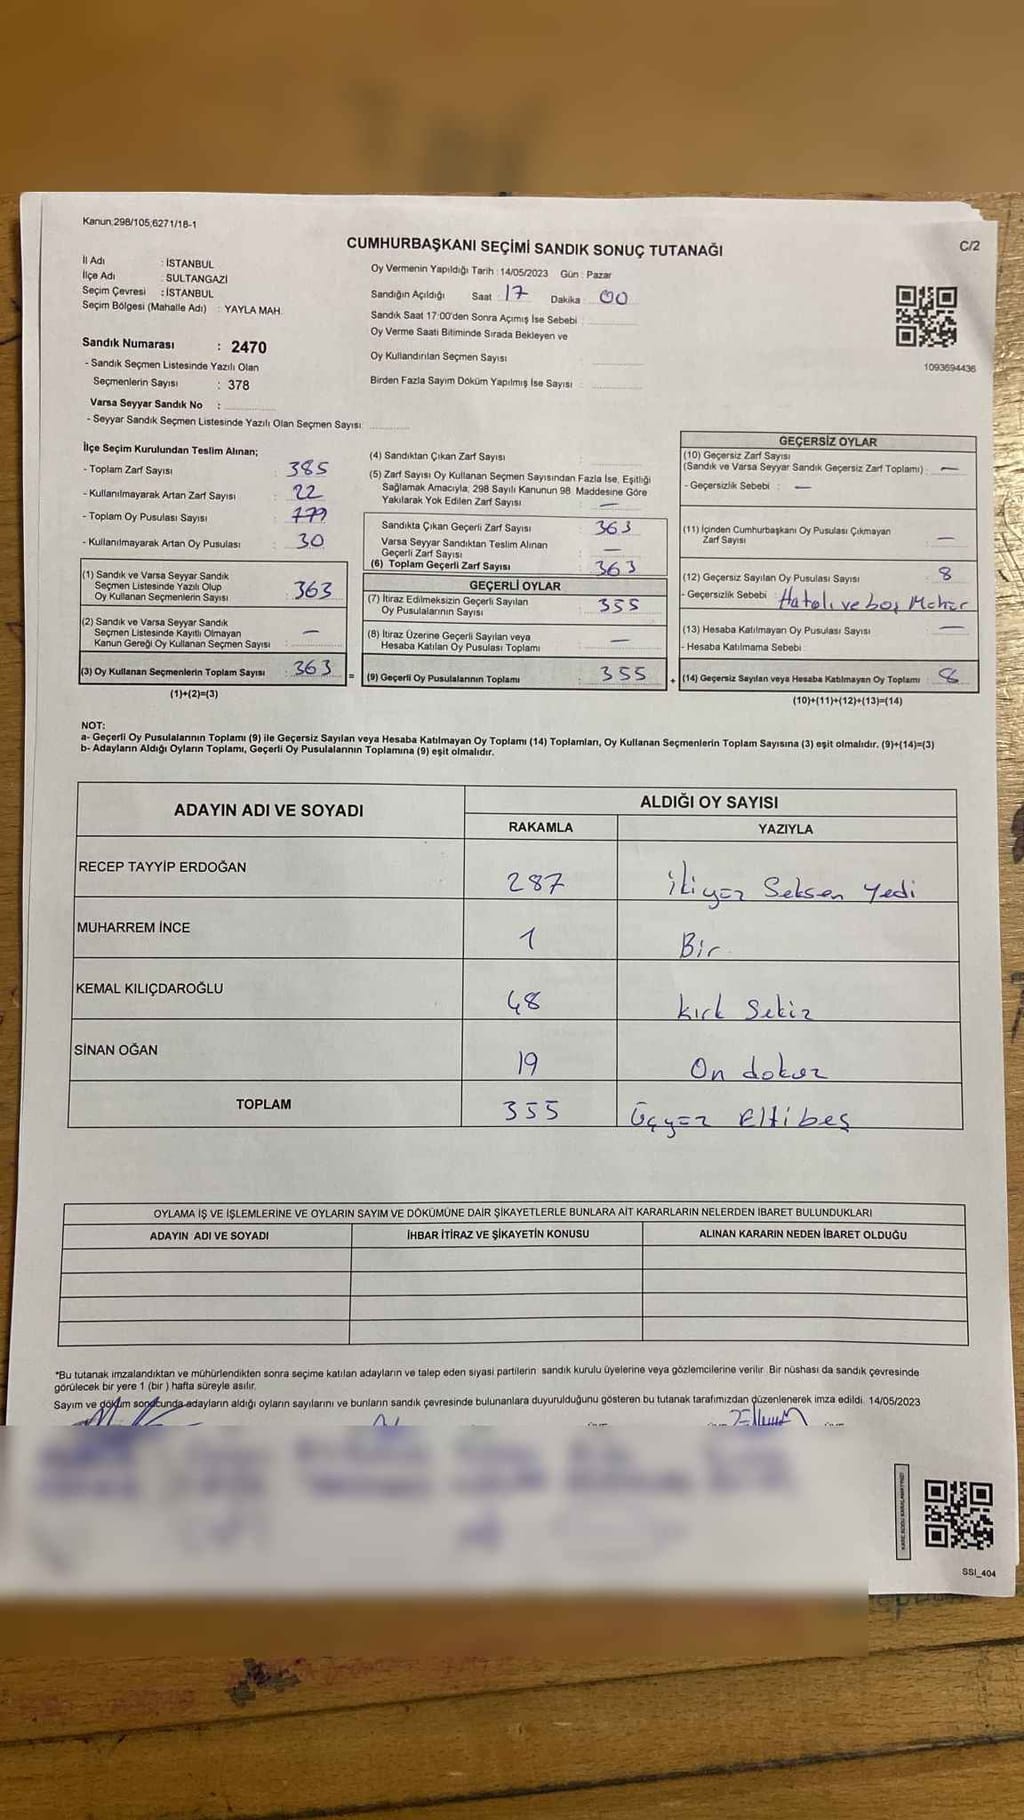 Kanun;298/105,6271/18-1
CUMHURBAŞKANI SEÇİMİ SANDIK SONUÇ TUTANAĞI
C/2
İl Adı : İSTANBUL
İlçe Adı : SULTANGAZİ
Seçim Çevresi : İSTANBUL
Seçim Bölgesi (Mahalle Adı) : YAYLA MAH.
Oy Vermenin Yapıldığı Tarih : 14/05/2023 Gün : Pazar
Sandığın Açıldığı Saat : 17 Dakika : 00
Sandık Saat 17:00'den Sonra Açımış İse Sebebi :
Oy Verme Saati Bitiminde Sırada Bekleyen ve
Oy Kullandırılan Seçmen Sayısı
Birden Fazla Sayım Döküm Yapılmış İse Sayısı :
1093694436
Sandık Numarası : 2470
- Sandık Seçmen Listesinde Yazılı Olan
Seçmenlerin Sayısı : 378
Varsa Seyyar Sandık No :
- Seyyar Sandık Seçmen Listesinde Yazılı Olan Seçmen Sayısı:
İlçe Seçim Kurulundan Teslim Alınan;
- Toplam Zarf Sayısı : 385
- Kullanılmayarak Artan Zarf Sayısı : 22
- Toplam Oy Pusulası Sayısı :
- Kullanılmayarak Artan Oy Pusulası : 30
(1) Sandık ve Varsa Seyyar Sandık
Seçmen Listesinde Yazılı Olup
Oy Kullanan Seçmenlerin Sayısı : 363
(2) Sandık ve Varsa Seyyar Sandık
Seçmen Listesinde Kayıtlı Olmayan
Kanun Gereği Oy Kullanan Seçmen Sayısı : —
(3) Oy Kullanan Seçmenlerin Toplam Sayısı : 363
(1)+(2)=(3)
=
(4) Sandıktan Çıkan Zarf Sayısı :
(5) Zarf Sayısı Oy Kullanan Seçmen Sayısından Fazla İse, Eşitliği
Sağlamak Amacıyla, 298 Sayılı Kanunun 98. Maddesine Göre
Yakılarak Yok Edilen Zarf Sayısı : —
Sandıkta Çıkan Geçerli Zarf Sayısı : 363
Varsa Seyyar Sandıktan Teslim Alınan
Geçerli Zarf Sayısı : —
(6) Toplam Geçerli Zarf Sayısı : 363
GEÇERLİ OYLAR
(7) İtiraz Edilmeksizin Geçerli Sayılan
Oy Pusulalarının Sayısı : 355
(8) İtiraz Üzerine Geçerli Sayılan veya
Hesaba Katılan Oy Pusulası Toplamı : —
(9) Geçerli Oy Pusulalarının Toplamı : 355
+
GEÇERSİZ OYLAR
(10) Geçersiz Zarf Sayısı
(Sandık ve Varsa Seyyar Sandık Geçersiz Zarf Toplamı) : —
- Geçersizlik Sebebi : —
(11) İçinden Cumhurbaşkanı Oy Pusulası Çıkmayan
Zarf Sayısı : —
(12) Geçersiz Sayılan Oy Pusulası Sayısı : 8
- Geçersizlik Sebebi : Hatalı ve boş Mühür
(13) Hesaba Katılmayan Oy Pusulası Sayısı : —
- Hesaba Katılmama Sebebi :
(14) Geçersiz Sayılan veya Hesaba Katılmayan Oy Toplamı : 8
(10)+(11)+(12)+(13)=(14)
NOT:
a- Geçerli Oy Pusulalarının Toplamı (9) ile Geçersiz Sayılan veya Hesaba Katılmayan Oy Toplamı (14) Toplamları, Oy Kullanan Seçmenlerin Toplam Sayısına (3) eşit olmalıdır. (9)+(14)=(3)
b- Adayların Aldığı Oyların Toplamı, Geçerli Oy Pusulalarının Toplamına (9) eşit olmalıdır.
ADAYIN ADI VE SOYADI
ALDIĞI OY SAYISI
RAKAMLA YAZIYLA
RECEP TAYYİP ERDOĞAN 287 İkiyüz Seksen Yedi
MUHARREM İNCE 1 Bir
KEMAL KILIÇDAROĞLU 48 Kırk Sekiz
SİNAN OĞAN 19 On dokuz
TOPLAM 355 Üçyüz Ellibeş
OYLAMA İŞ VE İŞLEMLERİNE VE OYLARIN SAYIM VE DÖKÜMÜNE DAİR ŞİKAYETLERLE BUNLARA AİT KARARLARIN NELERDEN İBARET BULUNDUKLARI
ADAYIN ADI VE SOYADI İHBAR İTİRAZ VE ŞİKAYETİN KONUSU ALINAN KARARIN NEDEN İBARET OLDUĞU
*Bu tutanak imzalandıktan ve mühürlendikten sonra seçime katılan adayların ve talep eden siyasi partilerin sandık kurulu üyelerine veya gözlemcilerine verilir. Bir nüshası da sandık çevresinde
görülecek bir yere 1 (bir ) hafta süreyle asılır.
Sayım ve döküm sonucunda adayların aldığı oyların sayılarını ve bunların sandık çevresinde bulunanlara duyurulduğunu gösteren bu tutanak tarafımızdan düzenlenerek imza edildi. 14/05/2023
SSI_404